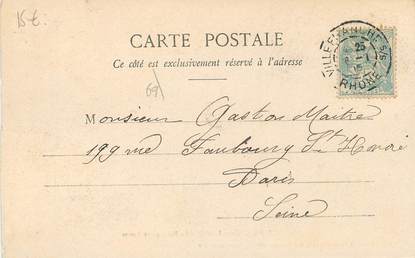 15 €
CARTE POSTALE
Ce côté est exclusivement réservé à l'adresse
(69)
Monsieur Gaston Maitre
199 rue Faubourg St Honoré
Paris
Seine
VILLEFRANCHE S/S
25
RHONE